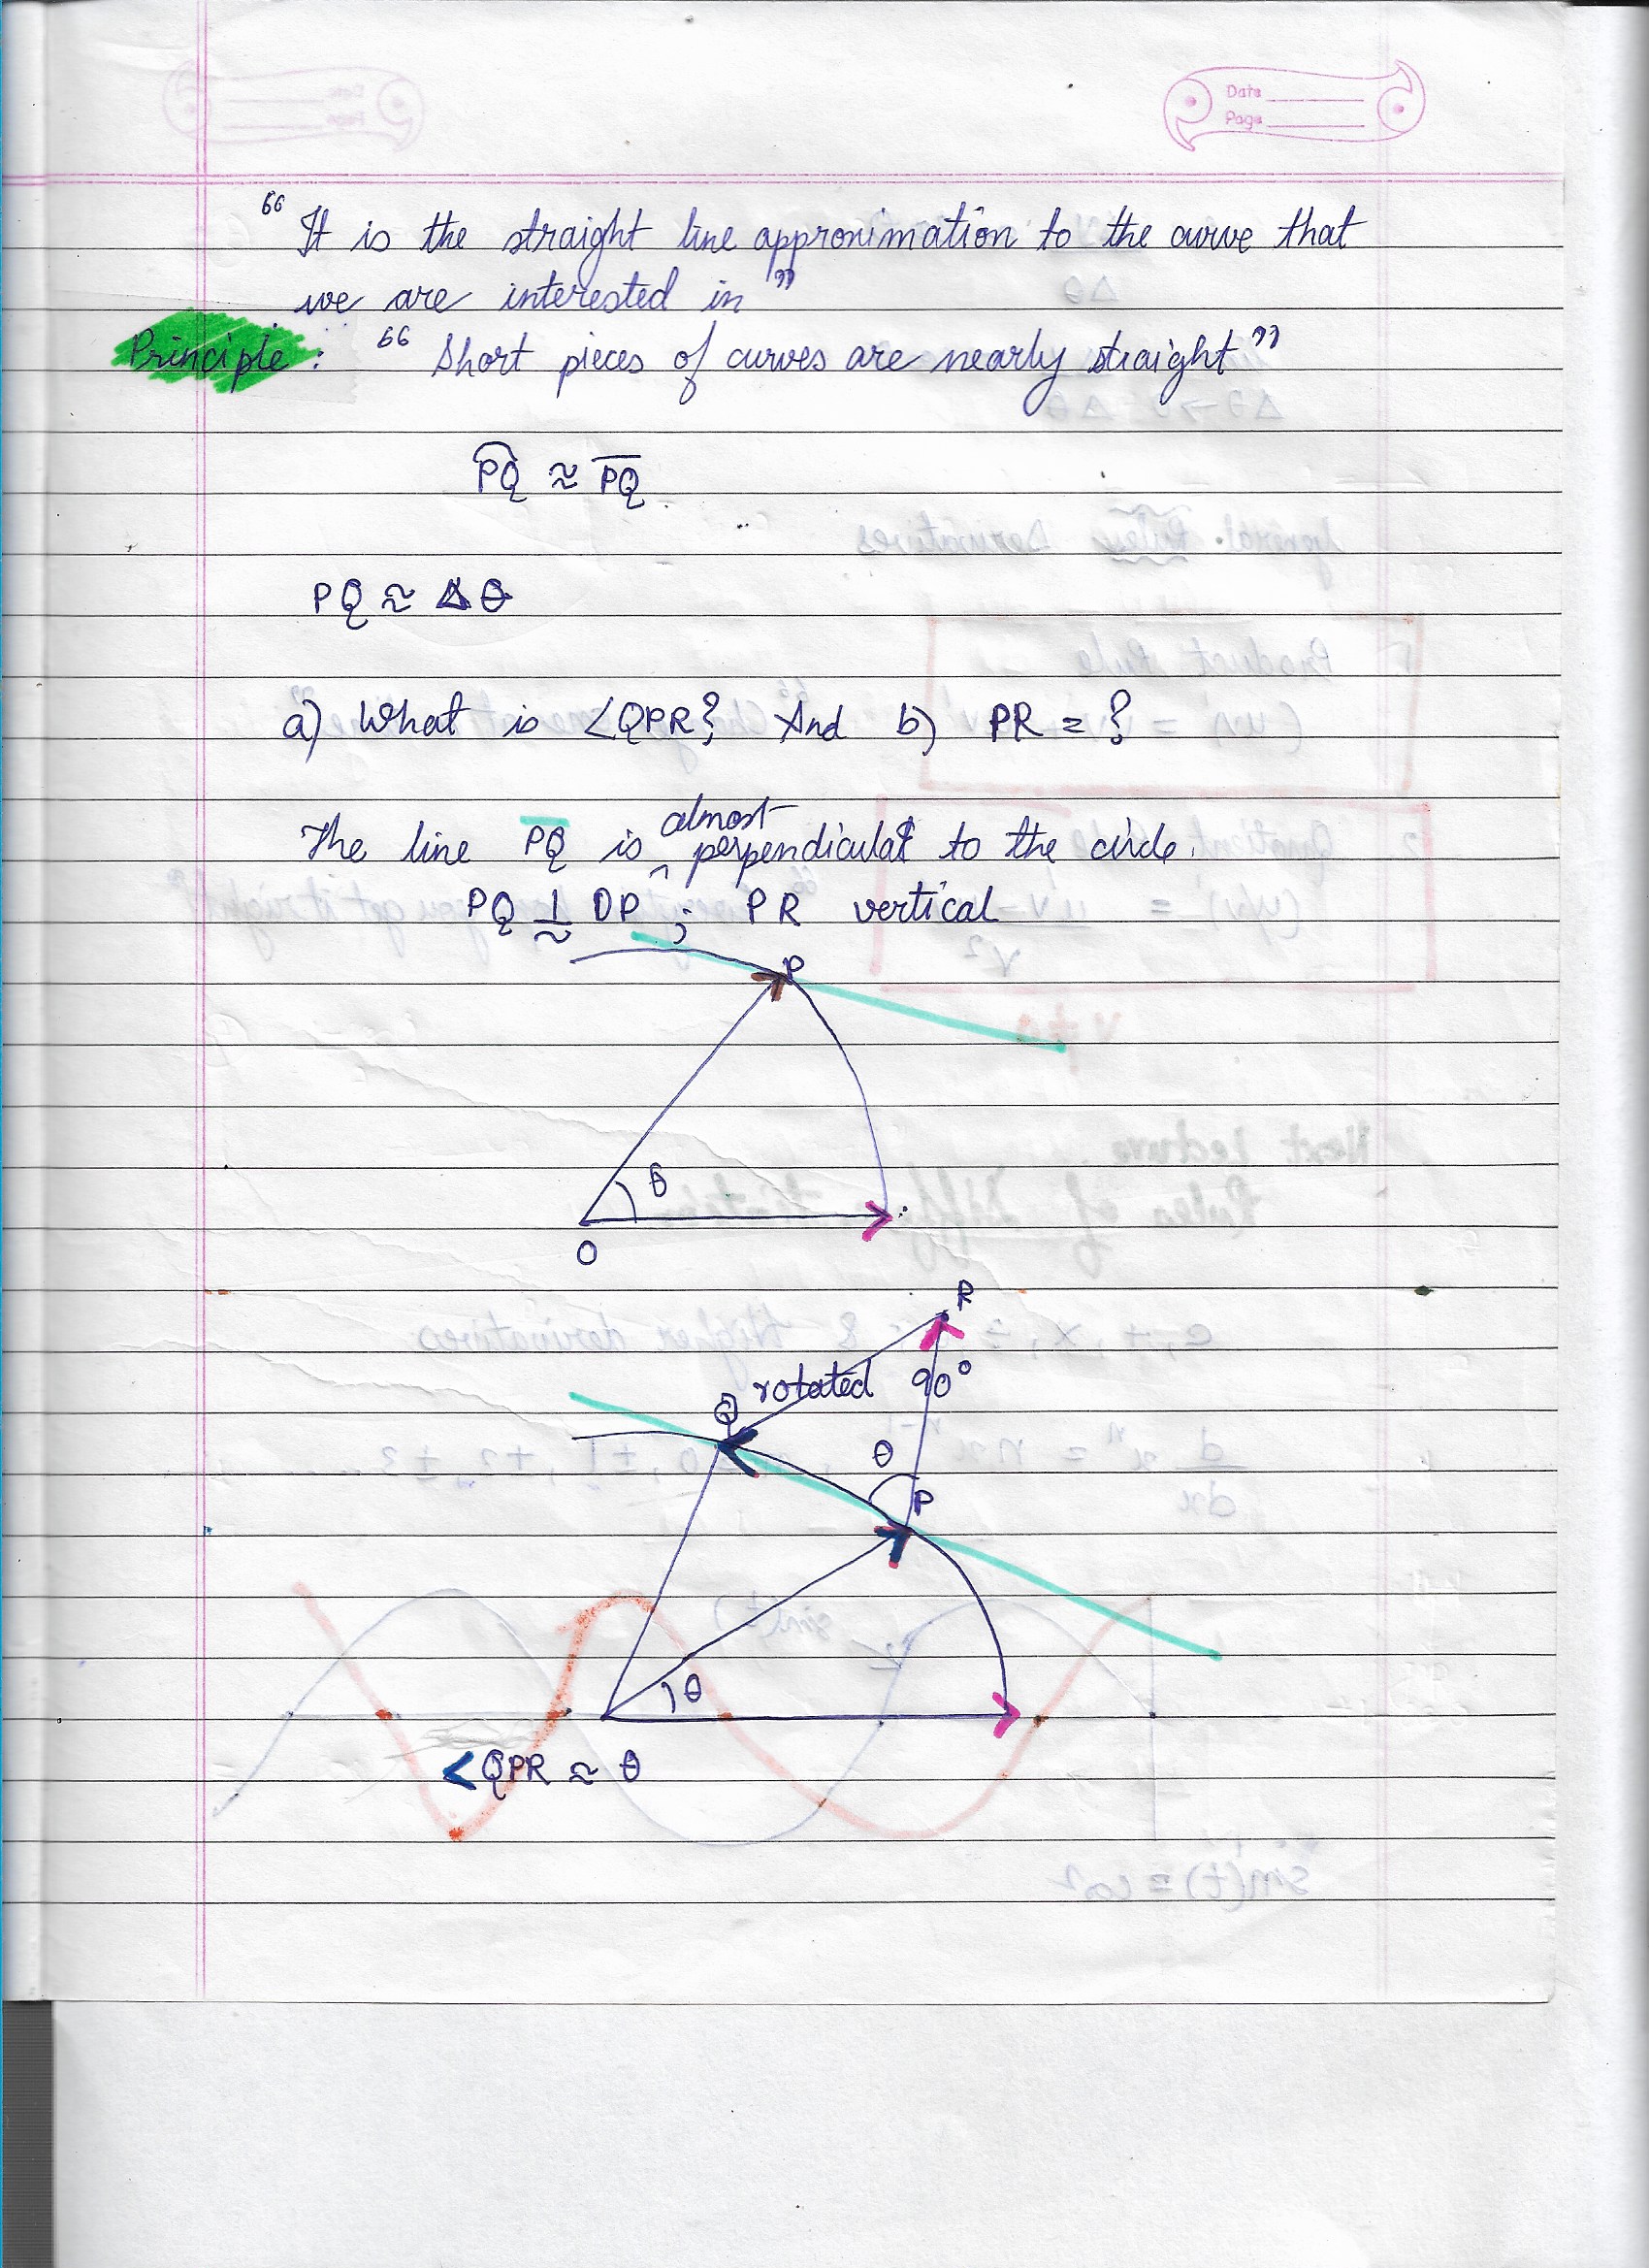 Date
Page
“ It is the straight line approximation to the curve that
we are interested in ”
Principle : “ Short pieces of curves are nearly straight ”
P͡Q ≈ P̅Q̅
PQ ≈ Δθ
a) What is <QPR? And b) PR = ?
The line P̅Q̅ is almost perpendicular to the circle.
PQ ⊥ OP ; PR vertical
≈
P
θ
O
R
rotated 90°
Q
θ
P
θ
<QPR ≈ θ